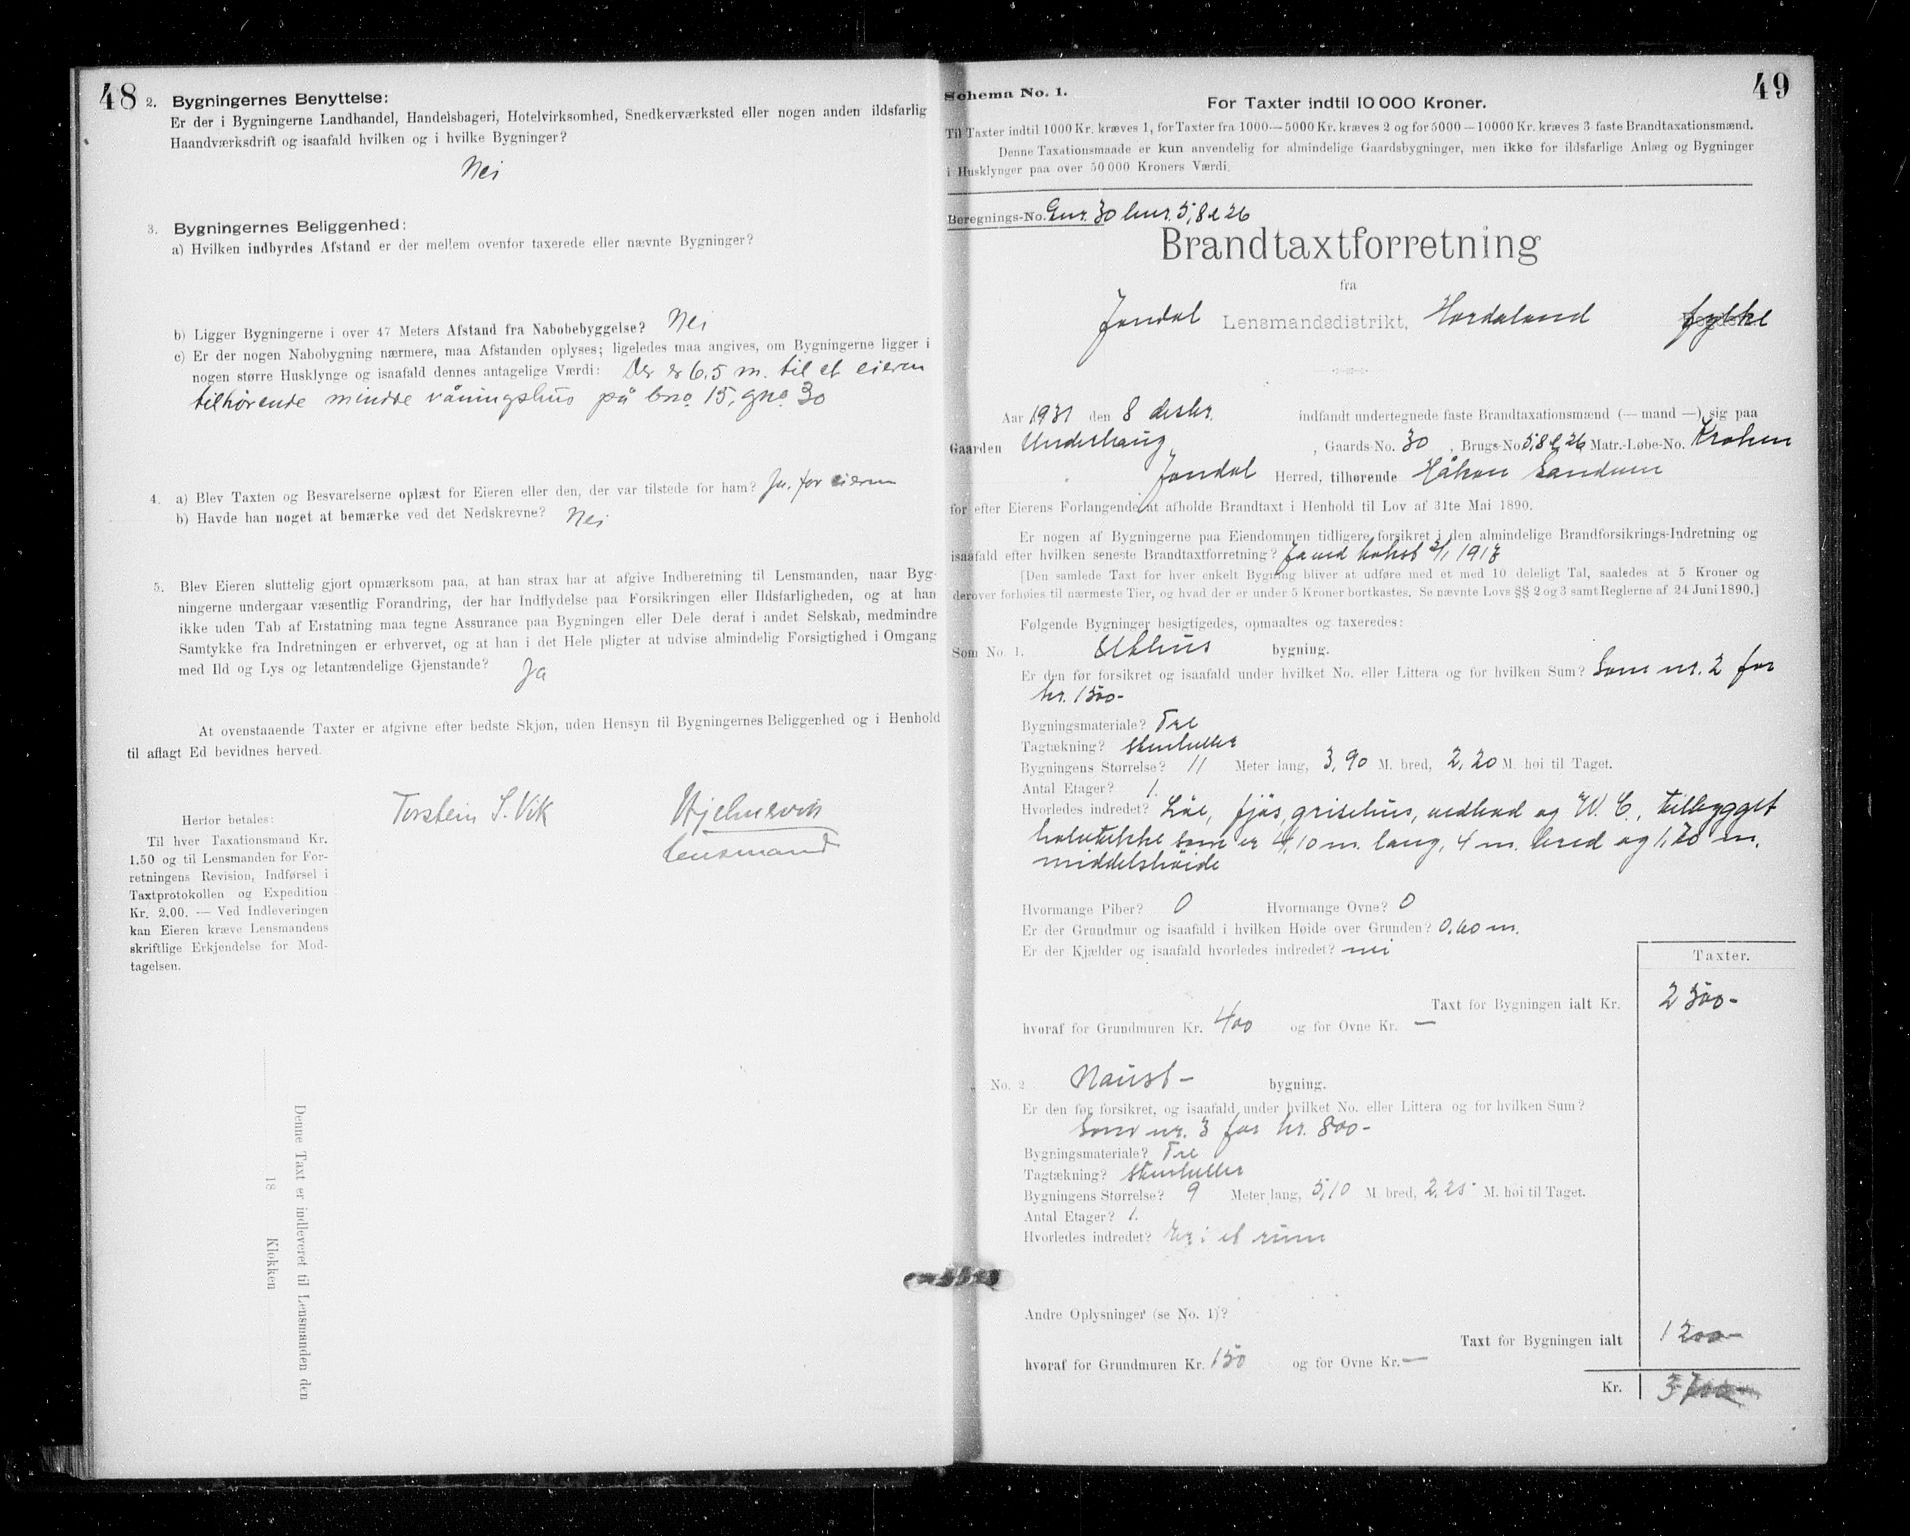 48
2. Bygningernes Benyttelse:
Er der i Bygningerne Landhandel, Handelsbageri, Hotelvirksomhed, Snedkerværksted eller nogen anden ildsfarlig
Haandværksdrift og isaafald hvilken og i hvilke Bygninger?
Nei
3. Bygningernes Beliggenhed:
a) Hvilken indbyrdes Afstand er der mellem ovenfor taxerede eller nævnte Bygninger?
b) Ligger Bygningerne i over 47 Meters Afstand fra Nabobebyggelse? Nei
c) Er der nogen Nabobygning nærmere, maa Afstanden oplyses; ligeledes maa angives, om Bygningerne ligger i
nogen større Husklynge og isaafald dennes antagelige Værdi: Der er 6.5 m. til et eieren
tilhørende mindre våningshus på bno. 15, gno. 30
4. a) Blev Taxten og Besvarelserne oplæst for Eieren eller den, der var tilstede for ham? Ja. for eieren
b) Havde han noget at bemærke ved det Nedskrevne? Nei
5. Blev Eieren sluttelig gjort opmærksom paa, at han strax har at afgive Indberetning til Lensmanden, naar Byg-
ningerne undergaar væsentlig Forandring, der har Indflydelse paa Forsikringen eller Ildsfarligheden, og at han
ikke uden Tab af Erstatning maa tegne Assurance paa Bygningen eller Dele deraf i andet Selskab, medmindre
Samtykke fra Indretningen er erhvervet, og at han i det Hele pligter at udvise almindelig Forsigtighed i Omgang
med Ild og Lys og letantændelige Gjenstande? Ja
At ovenstaaende Taxter er afgivne efter bedste Skjøn, uden Hensyn til Bygningernes Beliggenhed og i Henhold
til aflagt Ed bevidnes herved.
Torstein S. Vik Hjelmervik
lensmand
Herfor betales:
Til hver Taxationsmand Kr.
1.50 og til Lensmanden for For-
retningens Revision, Indførsel i
Taxtprotokollen og Expedition
Kr. 2.00. — Ved Indleveringen
kan Eieren kræve Lensmandens
skriftlige Erkjendelse for Mod-
tagelsen.
Denne Taxt er indleveret til Lensmanden den
18 Klokken
49
Schema No. 1.
For Taxter indtil 10 000 Kroner.
Til Taxter indtil 1000 Kr. kræves 1, for Taxter fra 1000—5000 Kr. kræves 2 og for 5000—10000 Kr. kræves 3 faste Brandtaxationsmænd.
Denne Taxationsmaade er kun anvendelig for almindelige Gaardsbygninger, men ikke for ildsfarlige Anlæg og Bygninger
i Husklynger paa over 50 000 Kroners Værdi.
Beregnings-No. Gnr. 30 bnr. 5, 8 & 26
Brandtaxtforretning
fra
Jondal Lensmandsdistrikt, Hordaland fylke
Aar 1931 den 8 desbr. indfandt undertegnede faste Brandtaxationsmænd (— mand —) sig paa
Gaarden Underhaug, Gaards-No. 30, Brugs-No. 5, 8 & 26 Matr.-Løbe-No. Kroken
Jondal Herred, tilhørende Håkon Sandven
for efter Eierens Forlangende at afholde Brandtaxt i Henhold til Lov af 31te Mai 1890.
Er nogen af Bygningerne paa Eiendommen tidligere forsikret i den almindelige Brandforsikrings-Indretning og
isaafald efter hvilken seneste Brandtaxtforretning? Ja ved takst 2/1 1917
[Den samlede Taxt for hver enkelt Bygning bliver at udføre med et med 10 deleligt Tal, saaledes at 5 Kroner og
derover forhøies til nærmeste Tier, og hvad der er under 5 Kroner bortkastes. Se nævnte Lovs §§ 2 og 3 samt Reglerne af 24 Juni 1890.]
Følgende Bygninger besigtigedes, opmaaltes og taxeredes:
Som No. 1. Uthus bygning.
Er den før forsikret og isaafald under hvilket No. eller Littera og for hvilken Sum? Som nr. 2 for
kr. 1500-
Bygningsmateriale? Tre
Tagtækning? Stenheller
Bygningens Størrelse? 11 Meter lang, 3,90 M. bred, 2,20 M. høi til Taget.
Antal Etager? 1.
Hvorledes indredet? Løe, fjøs, grisehus, vedbod og W. C, tilbygget
halvtekke som er 4,10 m. lang, 4 m. bred og 1,70 m.
middelshøide
Hvormange Piber? 0 Hvormange Ovne? 0
Er der Grundmur og isaafald i hvilken Høide over Grunden? 0.60 m.
Er der Kjælder og isaafald hvorledes indredet? nei
Taxter.
Taxt for Bygningen ialt Kr. 2500-
hvoraf for Grundmuren Kr. 400 og for Ovne Kr. —
„ No. 2 Naust- bygning.
Er den før forsikret, og isaafald under hvilket No. eller Littera og for hvilken Sum?
Som nr. 3 for kr. 800-
Bygningsmateriale? Tre
Tagtækning? Stenheller
Bygningens Størrelse? 9 Meter lang, 5,10 M. bred, 2,25 M. høi til Taget.
Antal Etager? 1.
Hvorledes indredet? Er i et rum
Andre Oplysninger (se No. 1)?
Taxt for Bygningen ialt 1200-
hvoraf for Grundmuren Kr. 150 og for Ovne Kr. —
Kr. 3700-